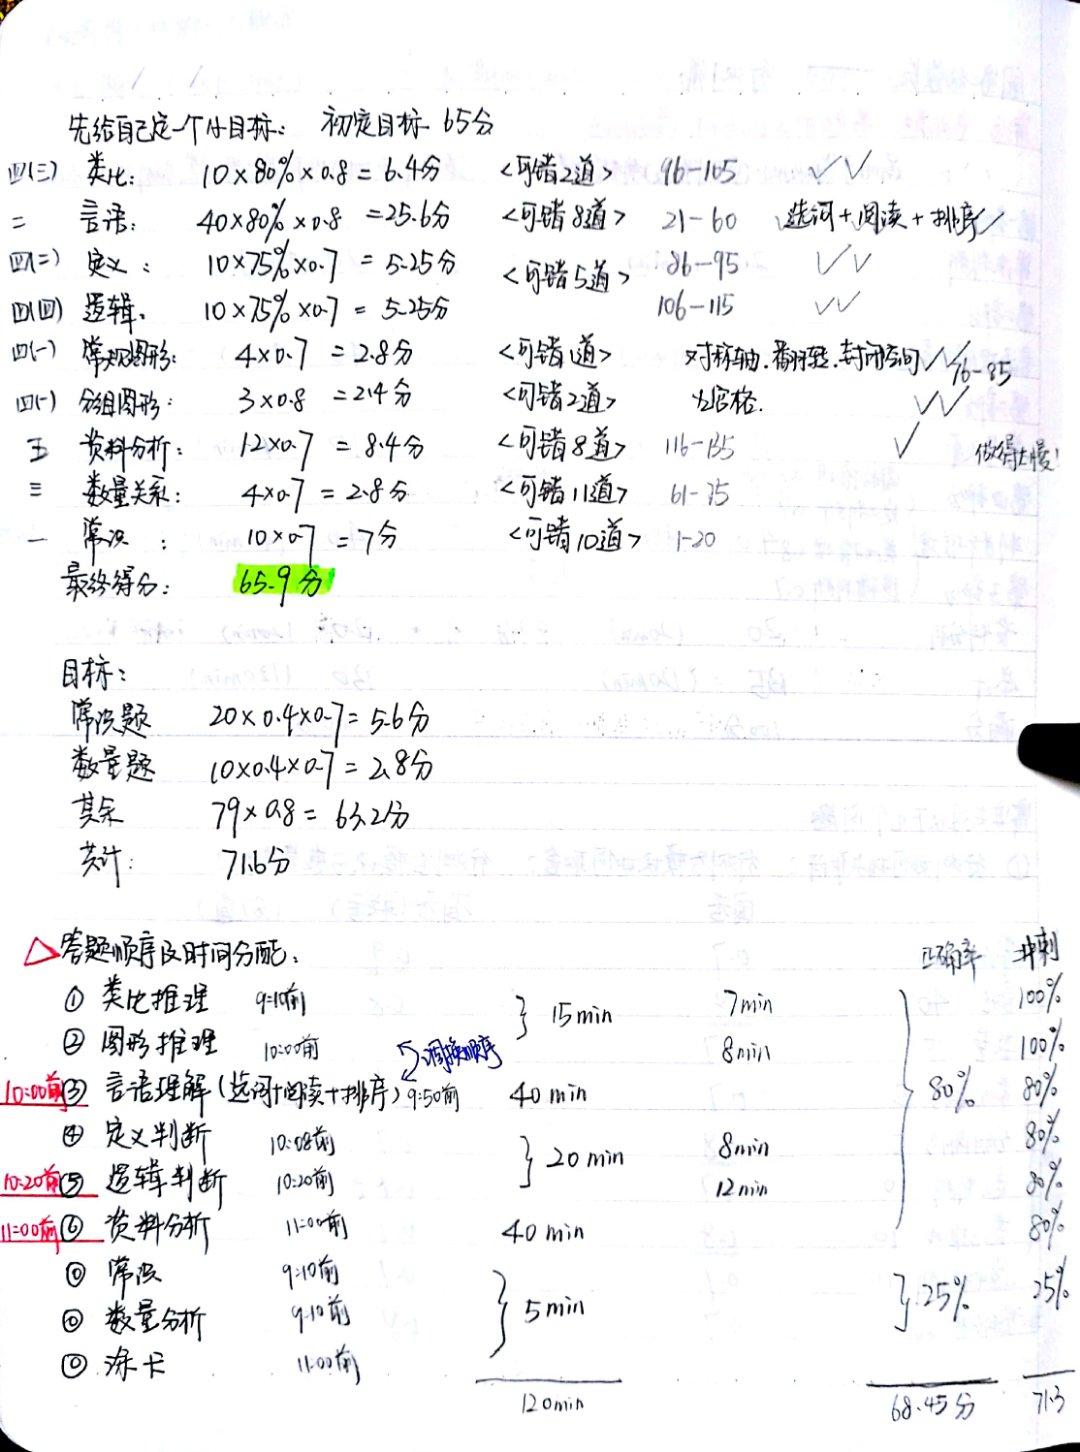 先给自己定一个小目标: 初定目标 65分
四(三) 类比: 10×80%×0.8=6.4分 <可错2道> 96-105 ✓✓
二 言语: 40×80%×0.8=25.6分 <可错8道> 21-60 选词+阅读+排序✓
四(二) 定义: 10×75%×0.7=5.25分 <可错5道> 86-95 ✓✓
四(四) 逻辑: 10×75%×0.7=5.25分 106-115 ✓✓
四(一) 常规图形: 4×0.7=2.8分 <可错1道> 对称轴.翻转.封闭空间 ✓✓ 76-85
四(一) 分组图形: 3×0.8=2.4分 <可错2道> 九宫格. ✓✓
五 资料分析: 12×0.7=8.4分 <可错8道> 116-135 ✓ 做得太慢!
三 数量关系: 4×0.7=2.8分 <可错11道> 61-75
一 常识: 10×0.7=7分 <可错10道> 1-20
最终得分: 65.9分
目标:
常识题 20×0.4×0.7=5.6分
数量题 10×0.4×0.7=2.8分
其余 79×0.8=63.2分
共计: 71.6分
△答题顺序及时间分配: 正确率 冲刺
① 类比推理 9:10前 15min 7min 100%
② 图形推理 10:00前 8min 100%
调换顺序
10:00前 ③ 言语理解(选词+阅读+排序) 9:50前 40min 80% 80%
④ 定义判断 10:08前 20min 8min 80%
10:20前 ⑤ 逻辑判断 10:20前 12min 80%
11:00前 ⑥ 资料分析 11:00前 40min 80%
⓪ 常识 9:10前 5min 25% 25%
⓪ 数量分析 9:10前
⓪ 涂卡 11:00前
120min 68.45分 71.3